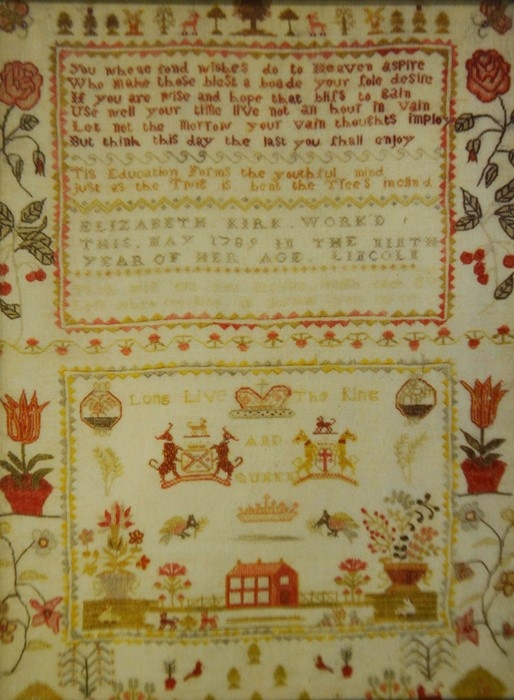 You whose fond wishes do to Heaven aspire
Who make those blest a boade your sole desire
If you are wise and hope that bliss to gain
Use well your time live not an hour in vain
Let not the Morrow your vain thoughts imploy
But think this day the last you shall enjoy
Tis Education Forms the youthful mind
Just as the Twig is bent the Tree's inclind
ELIZABETH KIRK. WORK'D
THIS. MAY 1789 IN THE NINTH
YEAR OF HER AGE. LINCOLN
Long Live The King
AND
QUEEN